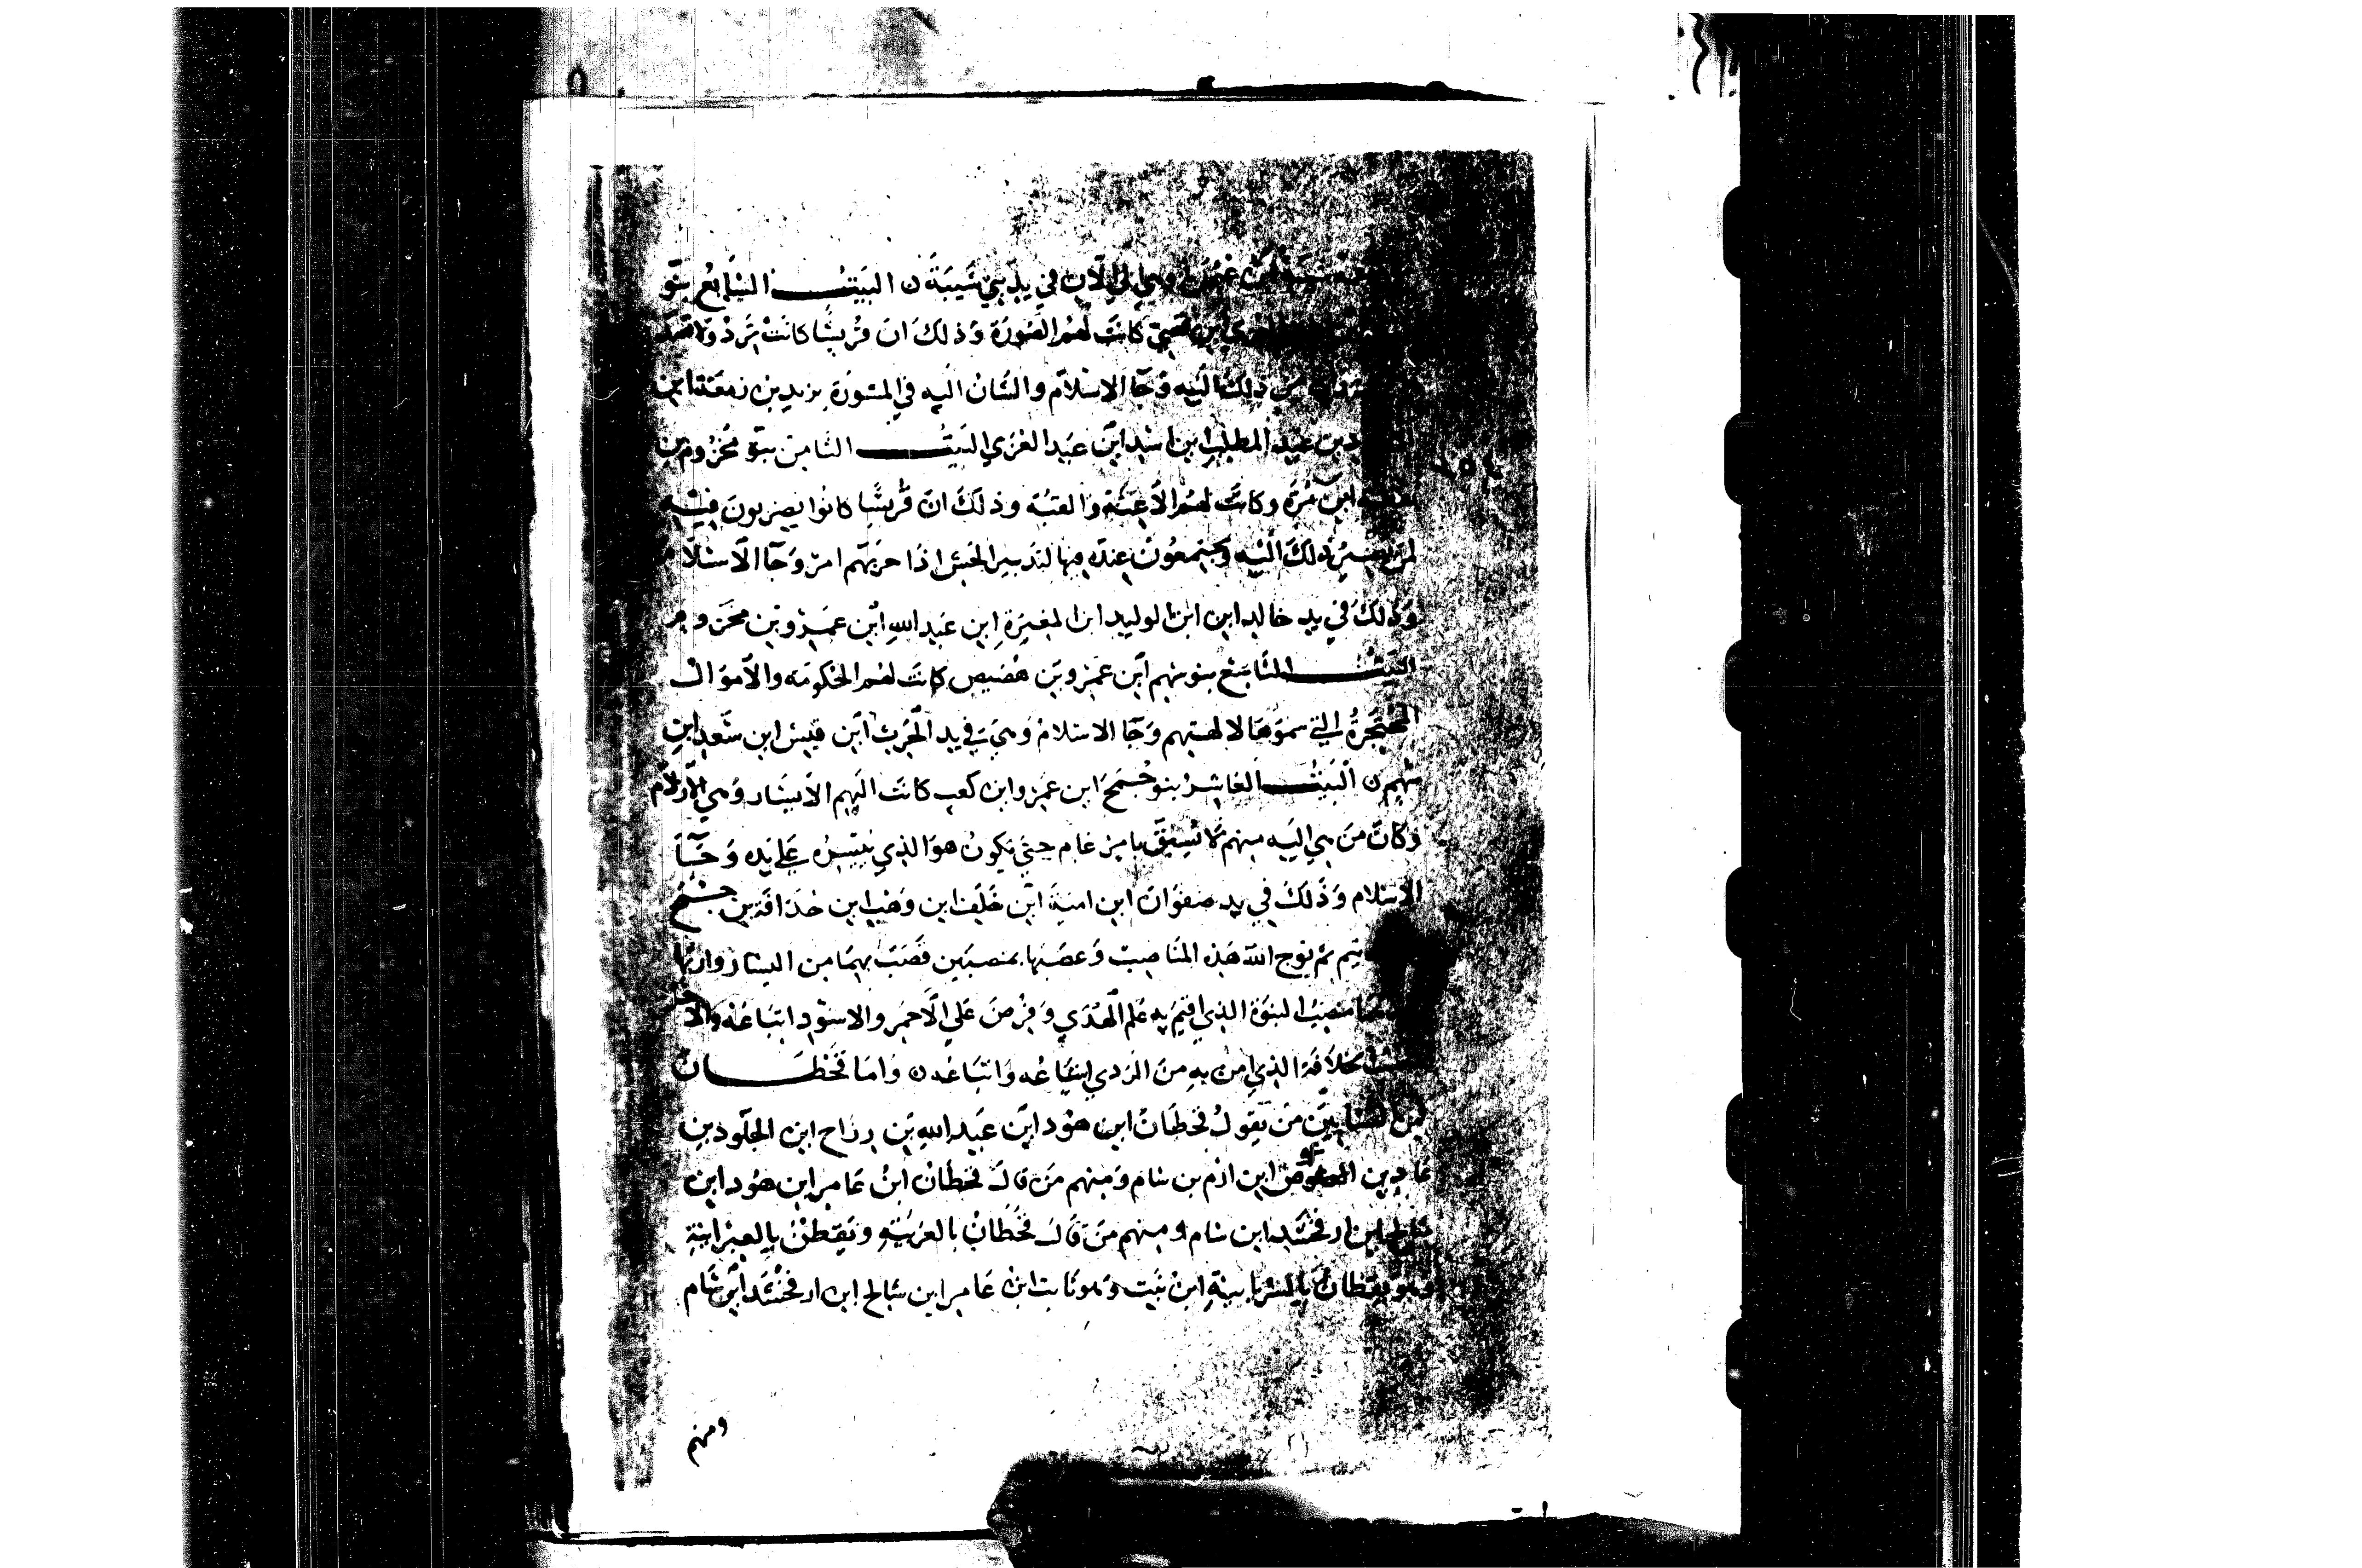 وهي الي الان في يد بني شيبة ن البيت السابع بنو
ابن قصي كانت لهم المشورة وذلك ان قريشا كانت
ذلك اليه وجا الاسلام والشان اليه في المشورة يزيد بن زمعة ابن
بن عبد المطلب ابن اسد ابن عبد العزي البيت الثامن بنو مخزوم بن
ابن مرة وكانت لهم الاعنة والقبة وذلك ان قريشا كانوا يضربون قبة
ذلك اليه ويجتمعون عنده فيها لتدبير الجيش اذا حزبهم امر وجا الاسلام
وذلك في يد خالد ابن ابن الوليد ابن المغيرة ابن عبد الله ابن عمرو بن مخزوم
البيت التاسع بنو سهم ابن عمرو بن هصيص كانت لهم الحكومة والاموال
المحتجرة التي سموها لالهتهم وجا الاسلام وهي في يد الحرث ابن قيس ابن سعد ابن
سهم ن البيت العاشر بنو جمح ابن عمرو ابن كعب كانت اليهم الايسار وهي الازلام
وكان من هي اليه منهم لا يسبق بامر عام حتي يكون هو الذي يتيسر علي يده وجا
الاسلام وذلك في يد صفوان ابن امية ابن خلف ابن وهب ابن حذافة بن جمح
ثم توج الله هذه المناصب وعصبها بمنصبين
منصب النبوة الذي اقيم به علم الهدي وفرض علي الاحمر والاسود اتباعه والاخر
الخلافة الذي امن به من الردي اشياعه واتباعه ن واما قحطان
من يقول قحطان ابن هود ابن عبد الله بن رزاح ابن الجلود بن
عاد بن عوص ابن ارم بن سام ومنهم من قال قحطان ابن عامر ابن هود ابن
شالخ ابن ارفخشد ابن سام ومنهم من قال قحطان بالعربية ويقطن بالعبرانية
وهو يقطان بالسريانية ابن نبت وهو نابت ابن عامر ابن شالخ ابن ارفخشد ابن سام
ومنهم